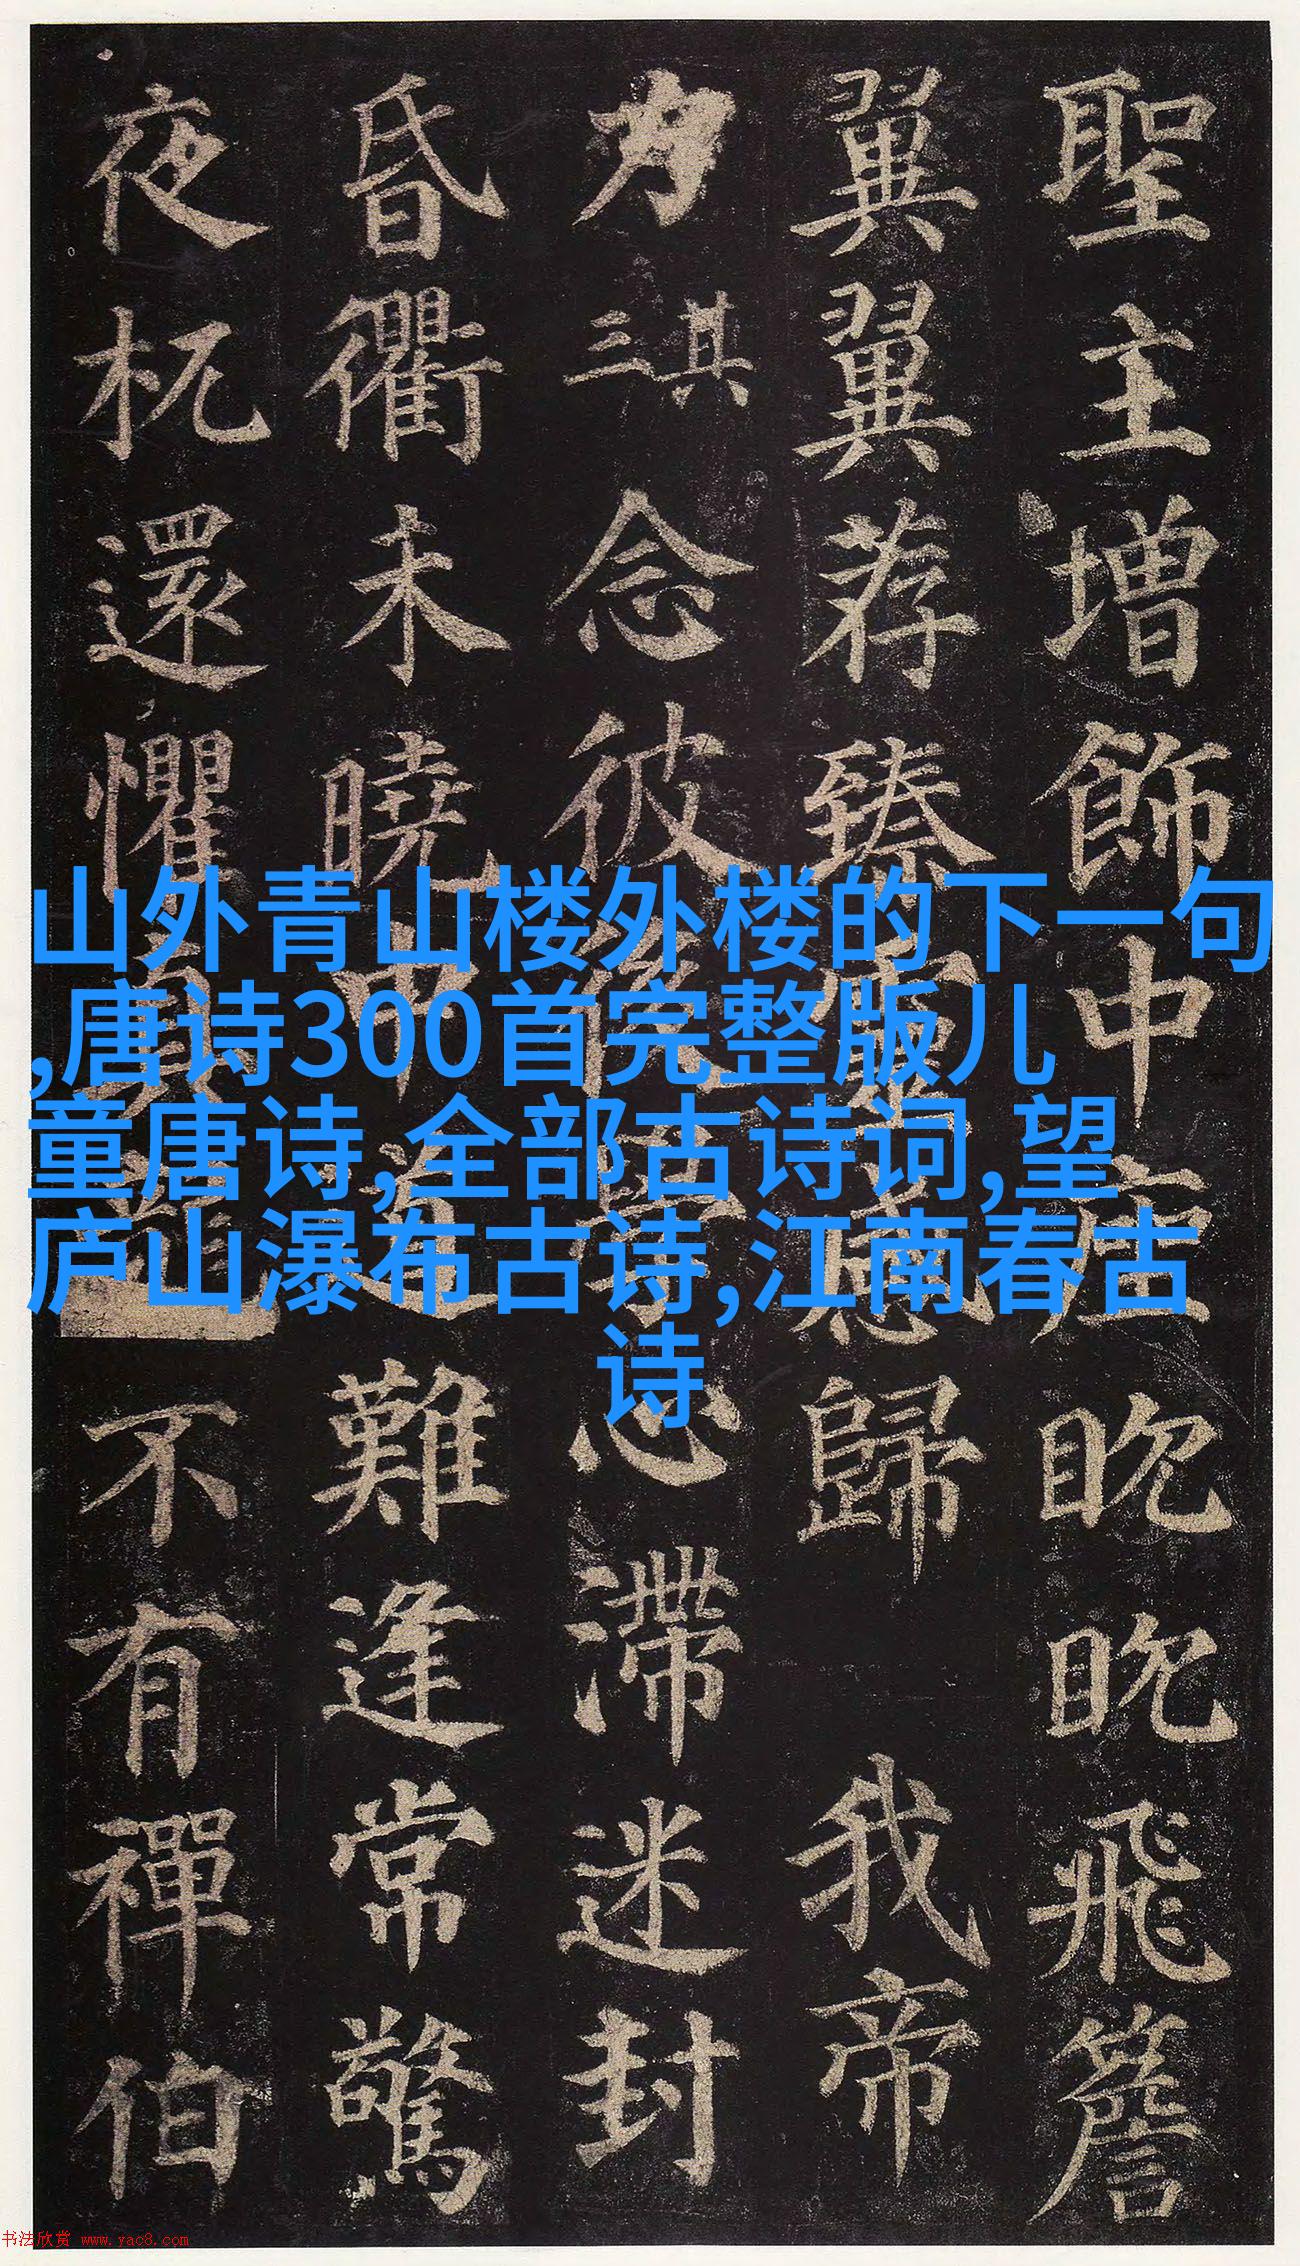 聖主增飾中眈眈飛簷
翼翼荐臻歸 我帝
力 其三 念彼後學心滯迷封
昏衢未曉中道難逢常驚
夜杌還懼真龍不有禪伯
山外青山楼外楼的下一句
,唐诗300首完整版儿
童唐诗,全部古诗词,望
庐山瀑布古诗,江南春古
诗
书法欣赏 www.yac8.com